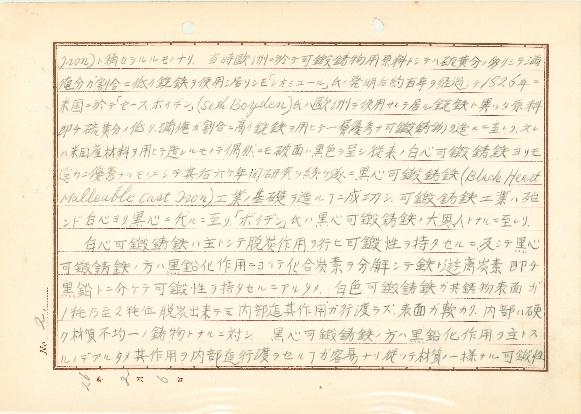 Iron)ト稱セラルルモノナリ. 当時歐洲ニ於テ可鍛鋳物用原料トシテハ硫黄分ノ多クシテ滿
俺分ガ割合ニ低イ銑鉄ヲ使用シ居リシモ「レオミュール」氏ノ発明后約百年ヲ経過シテ1826年ニ
米国ニ於テ「セース. ボイデン」(Seth Boyden)氏ハ歐洲デ使用サレテ居ル銑鉄ト異ッタ原料
即チ硫黄分ノ低ク. 滿俺ガ割合ニ高イ銑鉄ヲ用ヒテ一層優秀ナ可鍛鋳物ヲ造ルニ至レリ. 又レ
ハ米国産材料ヲ用ヒテ造レルモノデ偶然ニモ破面ハ黒色ヲ呈シ従来ノ白心可鍛鋳鉄ヨリモ
遥カニ優秀ナルモノニシテ其后六ケ年間研究ヲ続ケ遂ニ黒心可鍛鋳鉄(Black Heart
Malleable Cast Iron)工業ノ基礎ヲ造ルコトニ成功シ. 可鍛鋳鉄工業ハ殆
ンド白心ヨリ黒心ニ代ルニ至リ.「ボイデン」氏ハ黒心可鍛鋳鉄ノ大異人トナルニ至レリ
白心可鍛鋳鉄ハ主トシテ脱炭作用ヲ行ヒ可鍛性ヲ持タセルニ反シテ黒心
可鍛鋳鉄ノ方ハ黒鉛化作用ニヨッテ化合炭素ヲ分解シテ鉄ト遊離炭素 即チ
黒鉛トニ分ケテ可鍛性ヲ持タセルニアルタメ. 白色可鍛鋳鉄ガ其鋳物表面ガ
1粍乃至2粍位脱炭出来テモ内部迄其作用ガ行渡ラズ. 表面ガ軟カク. 内部ハ硬
ク材質不均一ノ鋳物トナルニ対シ 黒心可鍛鋳鉄ノ方ハ黒鉛化作用ヲ主トス
ルノデアルタメ其作用ヲ内部迄行渡ラセルコトガ容易ナリ従ッテ材質ノ一様ナル可鍛性
No. 2.
26年 2月 6日